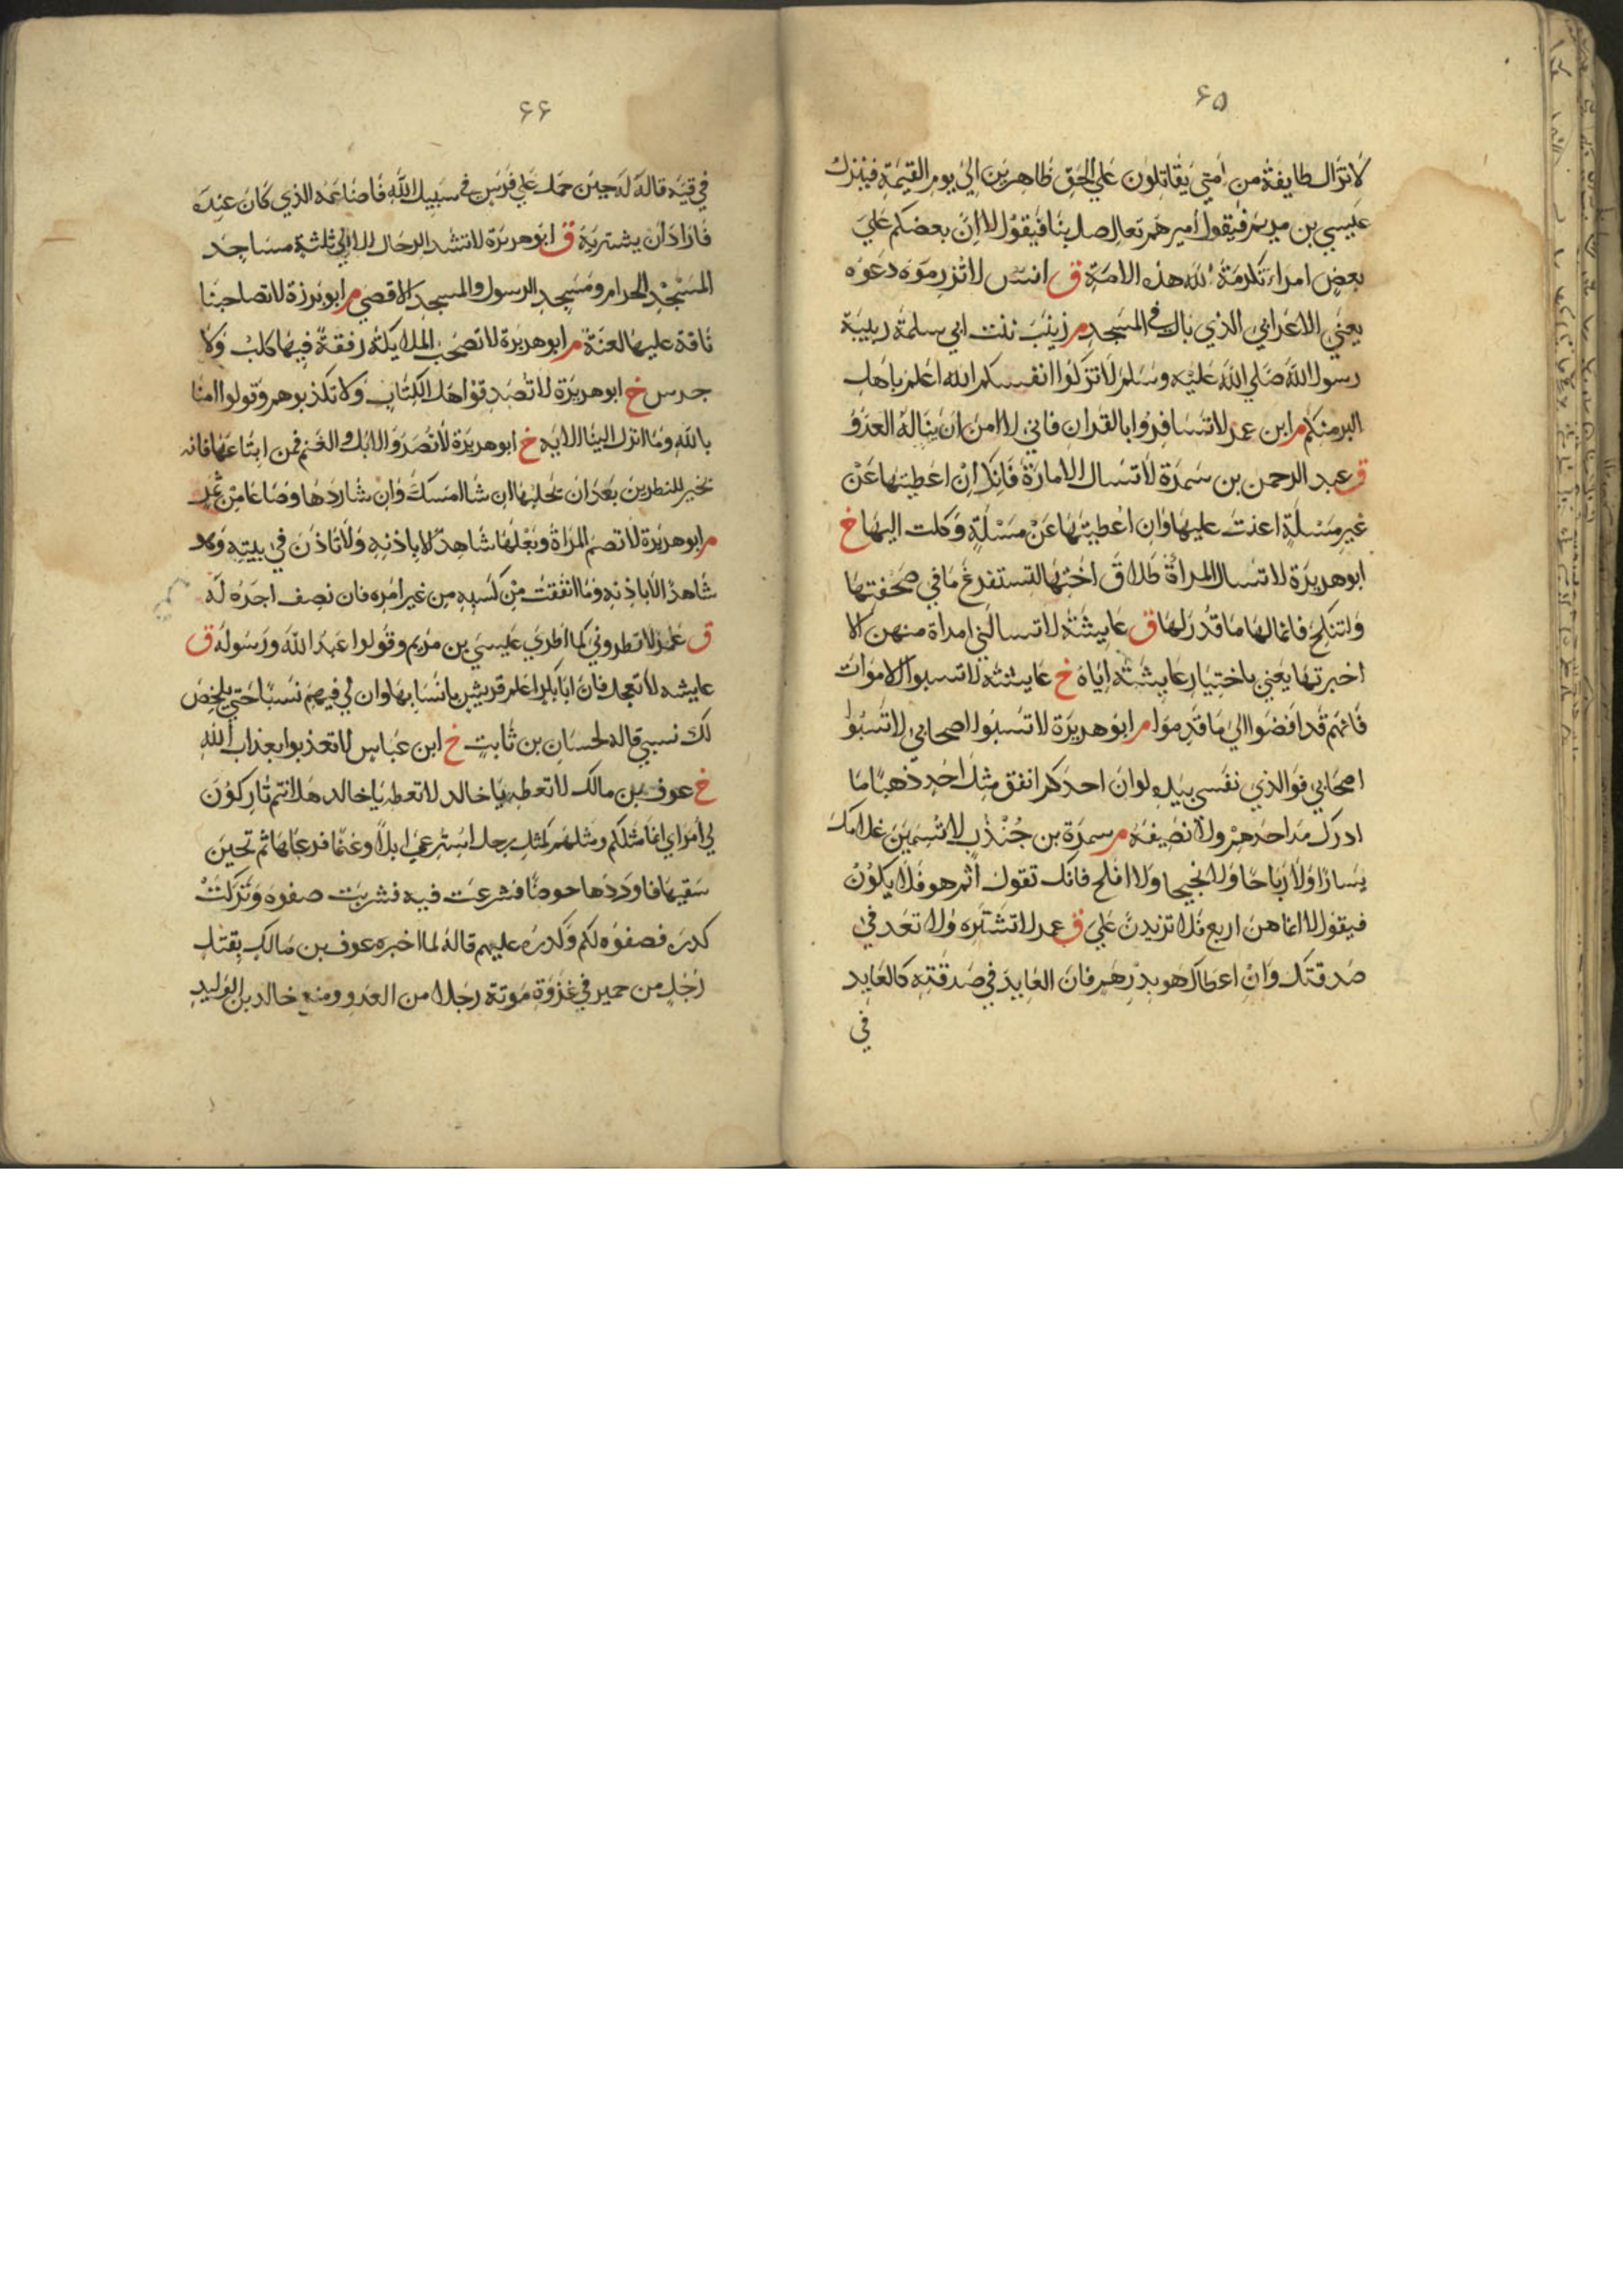 ۶۵
لا تزال طايفة من امتي يقاتلون علي الحق ظاهرين الي يوم القيمة فينزل
عيسي بن مريم فيقول اميرهم تعال صل بنا فيقول لا ان بعضكم علي
بعض امراء تكرمة الله هذه الامة ق انس لا تزرموه دعوه
يعني الاعرابي الذي بال في المسجد م زينب بنت ابي سلمة ربيبة
رسول الله صلي الله عليه وسلم لا تزكوا انفسكم الله اعلم باهل
البر منكم م ابن عمر لا تسافروا بالقران فاني لا امن ان يناله العدو
ق عبد الرحمن بن سمرة لا تسال الامارة فانك ان اعطيتها عن
غير مسئلة اعنت عليها وان اعطيتها عن مسئلة وكلت اليها خ
ابو هريرة لا تسال المراة طلاق اختها لتستفرغ ما في صحفتها
ولتنكح فانما لها ما قدر لها ق عايشة لا تسالني امراة منهن الا
اخبرتها يعني باختيار عايشة اياه خ عايشة لا تسبوا الاموات
فانهم قد افضوا الي ما قدموا م ابو هريرة لا تسبوا اصحابي لا تسبوا
اصحابي فوالذي نفسي بيده لو ان احدكم انفق مثل احد ذهبا ما
ادرك مد احدهم ولا نصيفه م سمرة بن جندب لا تسمين غلامك
يسارا ولا رباحا ولا نجيحا ولا افلح فانك تقول اثم هو فلا يكون
فيقول لا انما هن اربع فلا تزيدن علي ق عمر لا تشتره ولا تعد في
صدقتك وان اعطاكهو بدرهم فان العايد في صدقته كالعايد
في
۶۶
في قيه قاله له حين حمل علي فرس في سبيل الله فاضاعه الذي كان عنده
فاراد ان يشتريه ق ابو هريرة لا تشد الرحال الا الي ثلثة مساجد
المسجد الحرام ومسجد الرسول والمسجد الاقصي م ابو برزة لا تصاحبنا
ناقة عليها لعنة م ابو هريرة لا تصحب الملايكة رفقة فيها كلب ولا
جرس خ ابو هريرة لا تصدقوا اهل الكتاب ولا تكذبوهم وقولوا امنا
بالله وما انزل الينا الاية خ ابو هريرة لا تصروا الابل والغنم فمن ابتاعها فانه
بخير النظرين بعد ان يحلبها ان شا امسك وان شا ردها وصاعا من تمر
م ابو هريرة لا تصم المراة وبعلها شاهد الا باذنه ولا تاذن في بيته وهو
شاهد الا باذنه وما انفقت من كسبه من غير امره فان نصف اجره له
ق عمر لا تطروني كما اطري عيسي بن مريم وقولوا عبد الله ورسوله ق
عايشه لا تعجل فان ابا بكر اعلم قريش بانسابها وان لي فيهم نسبا حتي يلخص
لك نسبي قاله لحسان بن ثابت خ ابن عباس لا تعذبوا بعذاب الله
خ عوف بن مالك لا تعطه يا خالد لا تعطه يا خالد هل انتم تاركون
لي امراي انما مثلكم ومثلهم كمثل رجل استرعي ابلا وغنما فرعاها ثم تحين
سقيها فاوردها حوضا فشرعت فيه فشربت صفوه وتركت
كدره فصفوه لكم وكدره عليهم قاله لما اخبره عوف بن مالك بقتل
رجل من حمير في غزوة موتة رجلا من العدو ومنع خالد بن الوليد